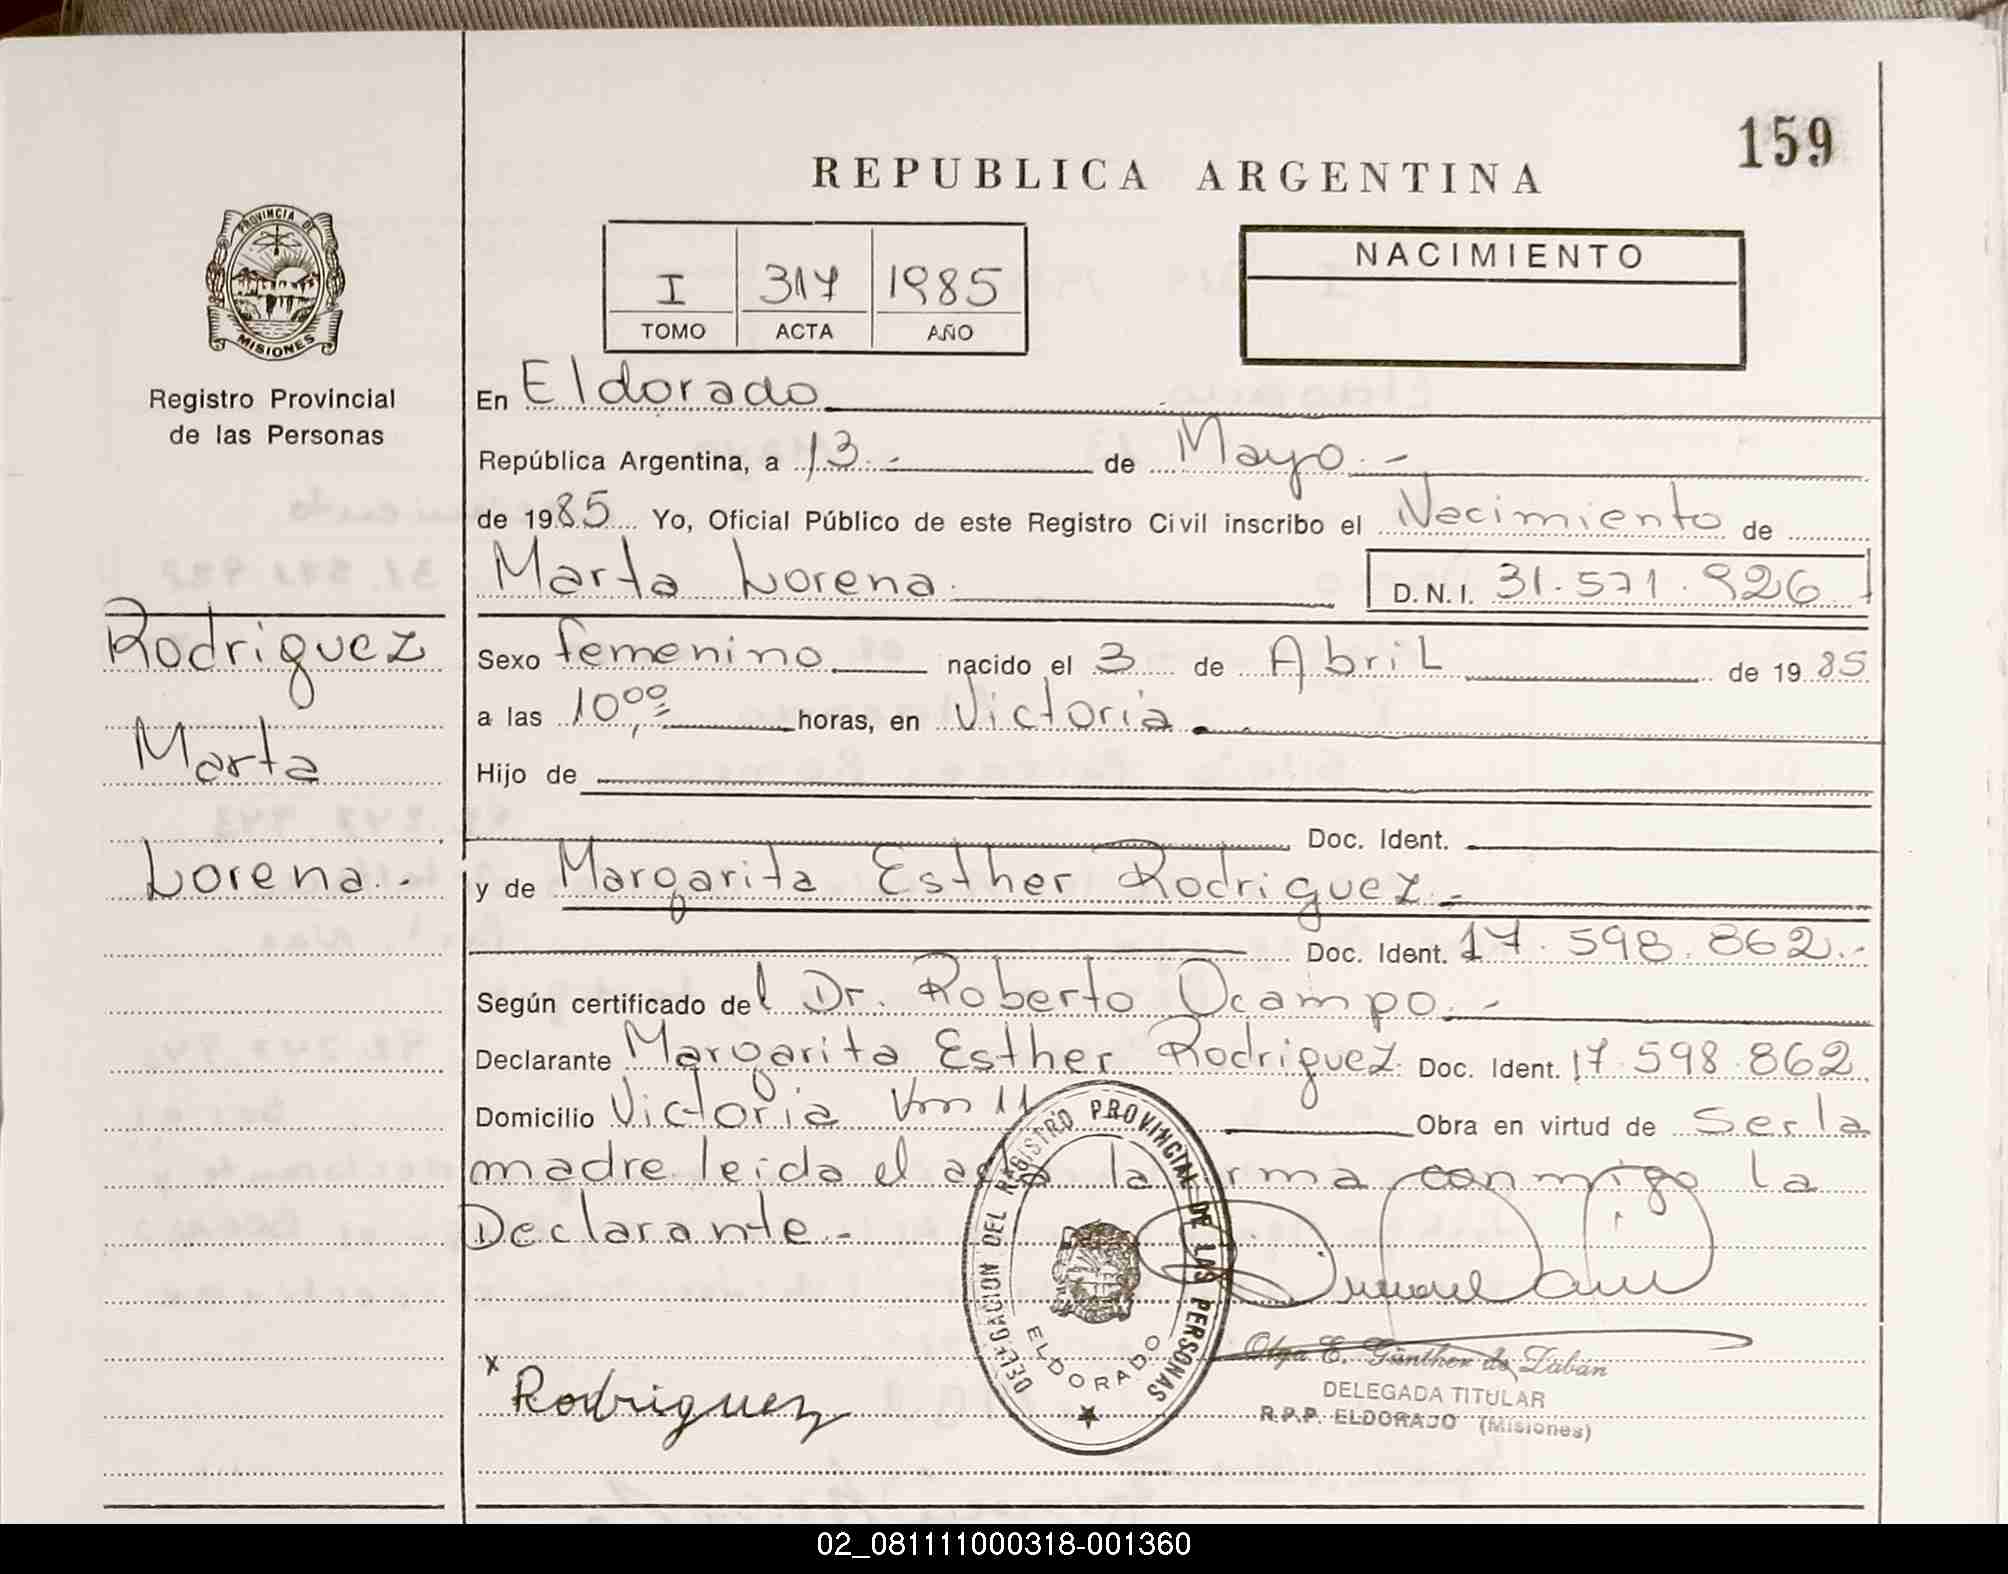 159
REPUBLICA ARGENTINA
PROVINCIA DE
MISIONES
Registro Provincial
de las Personas
I 317 1985
TOMO ACTA AÑO
NACIMIENTO
En Eldorado
República Argentina, a 13.- de Mayo.-
de 1985 Yo, Oficial Público de este Registro Civil inscribo el Nacimiento de
Marta Lorena. D.N.I. 31.571.926
Rodriguez
Marta
Lorena.-
Sexo femenino nacido el 3 de Abril de 1985
a las 10,00 horas, en Victoria
Hijo de
Doc. Ident.
y de Margarita Esther Rodriguez.-
Doc. Ident. 17.598.862.-
Según certificado del Dr. Roberto Ocampo.-
Declarante Margarita Esther Rodriguez. Doc. Ident. 17.598.862
Domicilio Victoria Km 11 Obra en virtud de Ser la
madre leida el acta la firma conmigo la
Declarante.-
DELEGACION DEL REGISTRO PROVINCIAL DE LAS PERSONAS
ELDORADO
x Rodriguez
Olga E. Günther de Zabán
DELEGADA TITULAR
R.P.P. ELDORADO (Misiones)
02_081111000318-001360